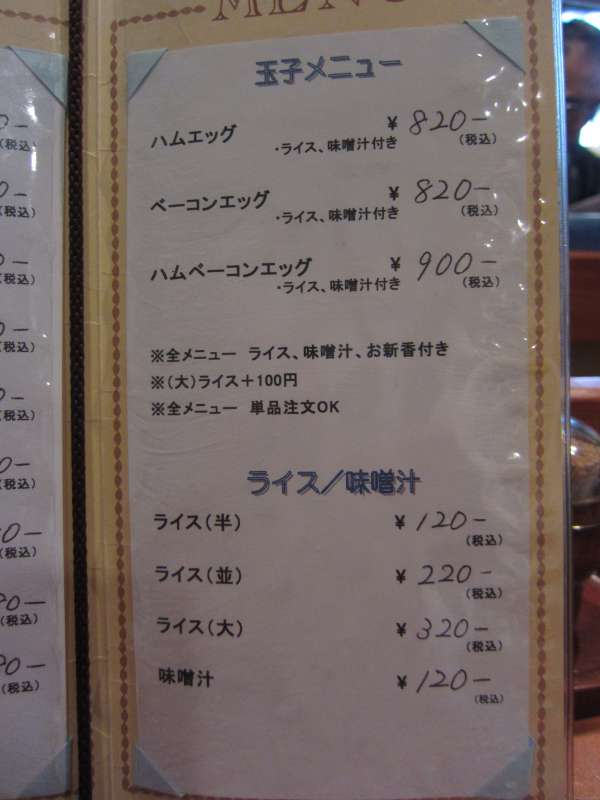 MENU
玉子メニュー
ハムエッグ ¥820-
・ライス、味噌汁付き (税込)
ベーコンエッグ ¥820-
・ライス、味噌汁付き (税込)
ハムベーコンエッグ ¥900-
・ライス、味噌汁付き (税込)
※全メニュー ライス、味噌汁、お新香付き
※(大)ライス+100円
※全メニュー 単品注文OK
ライス/味噌汁
ライス(半) ¥120-
(税込)
ライス(並) ¥220-
(税込)
ライス(大) ¥320-
(税込)
味噌汁 ¥120-
(税込)